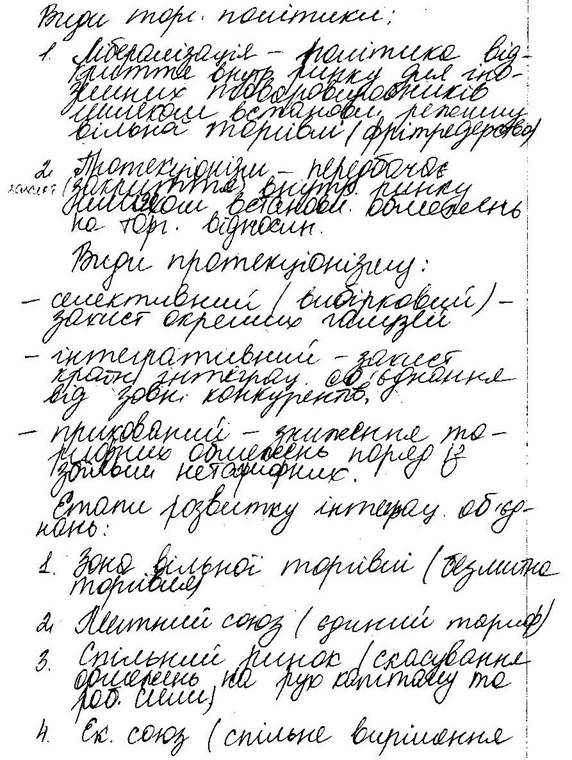 Види торг. політики:
1. Лібералізація – політика від-
криття внутр ринку для іно-
земних товаровиробників
шляхом встановл. режиму
вільна торгівлі (фрітредерство)
2. Протекціонізм – передбачає
захист (закриття) внутр. ринку
шляхом встанови. обмежень
на торг. відносин.
Види протекціонізму:
– селективний (вибірковий) –
захист окремих галузей
– інтегративний – захист
країн інтеграц. об'єднання
від зовн. конкурентів.
– прихований – зниження та-
рифних обмежень поряд із
збільш нетарифних.
Етапи розвитку інтеграц. об'єд-
нань:
1. Зона вільної торгівлі (безмитна
торгівля)
2. Митний союз (єдиний тариф)
3. Спільний ринок (скасування
обмежень на рух капіталу та
роб. сили)
4. Ек. союз (спільне вирішення